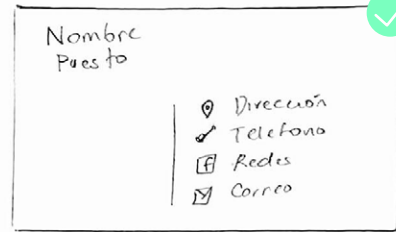 Nombre
Puesto
Dirección
Telefono
Redes
Correo